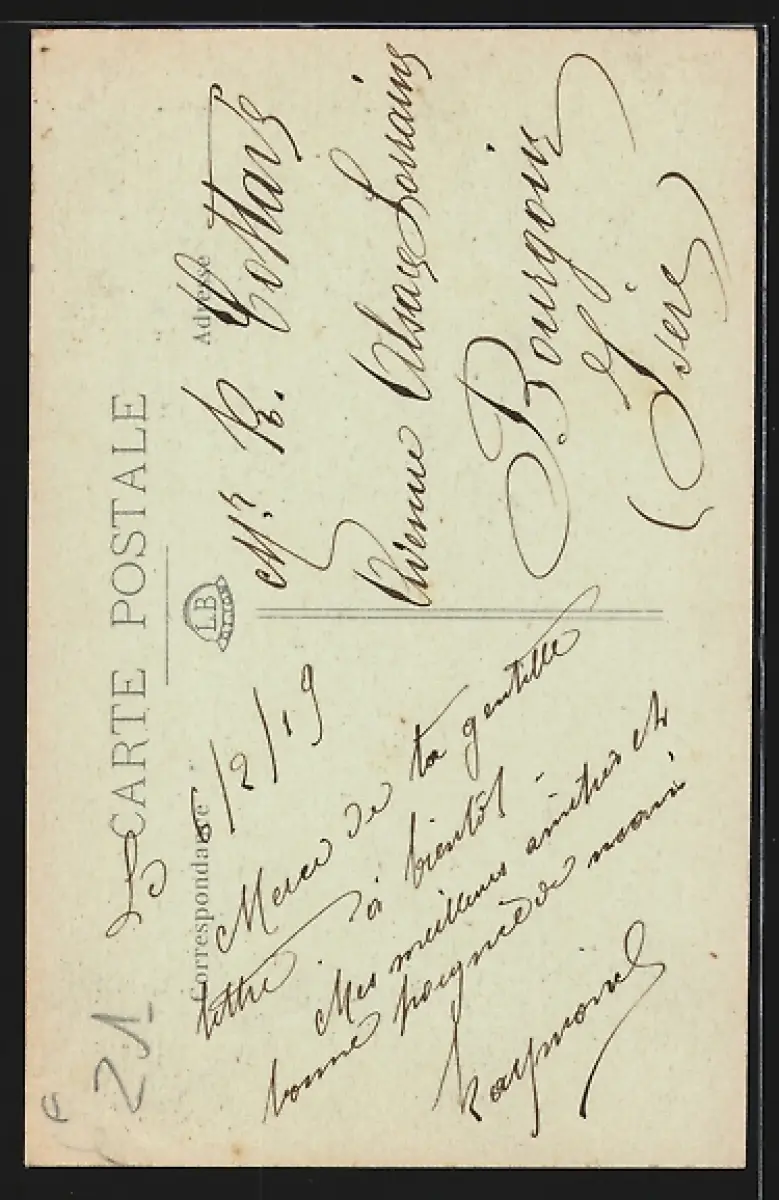 CARTE POSTALE
Correspondance
Adresse
LB
Le 6/2/19
Merci de ta gentille
lettre. à bientôt -
Mes meilleures amitiés et
bonne poignée de main
Raymond
Mr. R. Cottard
Avenue Alsace Lorraine
Bourgoin
(Isère
21